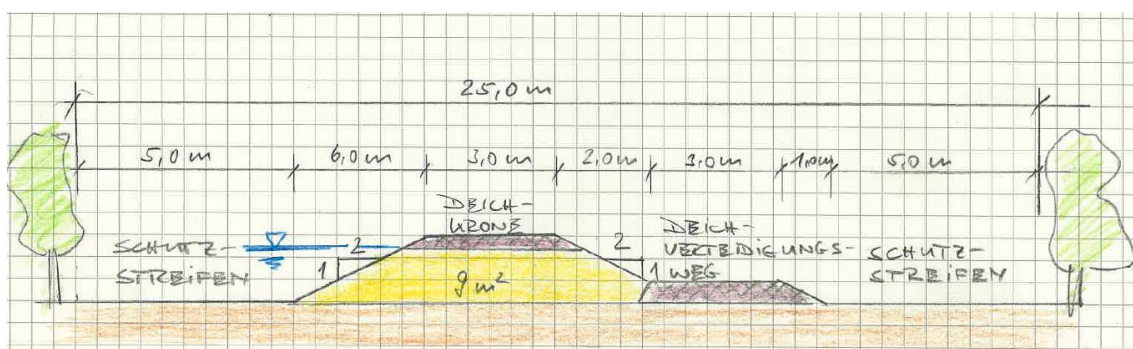 25,0 m
5,0 m
6,0 m
3,0 m
2,0 m
3,0 m
1,0 m
5,0 m
DEICH-
KRONE
SCHUTZ-
STREIFEN
2
1
9 m²
2
1
DEICH-
VERTEIDIGUNGS-
WEG
SCHUTZ-
STREIFEN